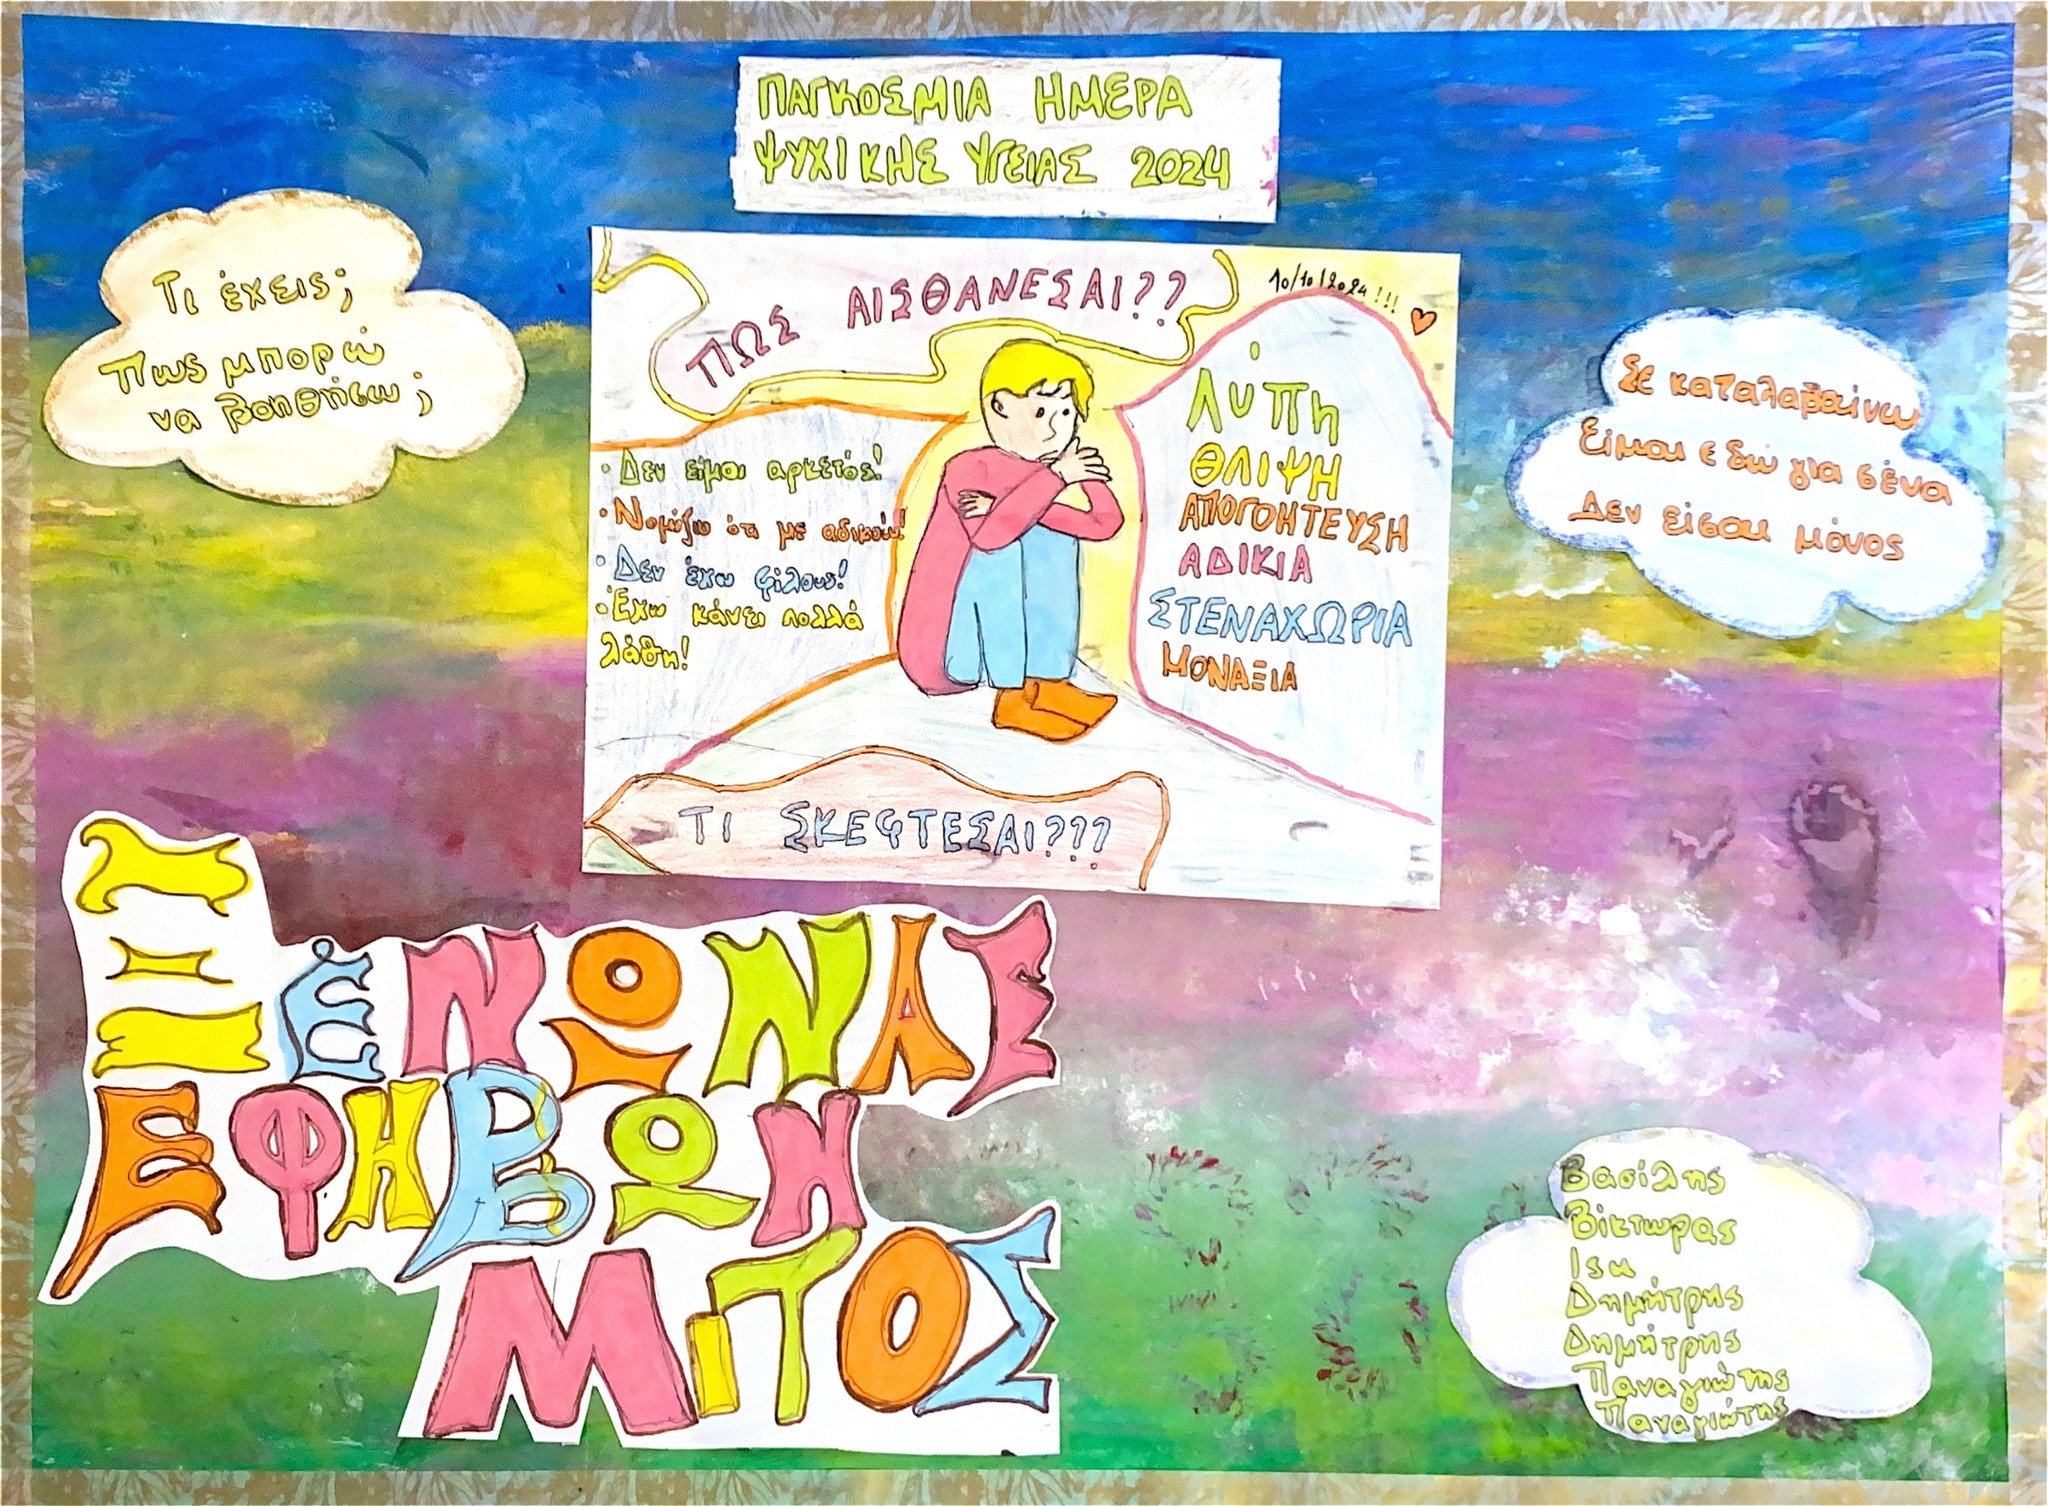 ΠΑΓΚΟΣΜΙΑ ΗΜΕΡΑ
ΨΥΧΙΚΗΣ ΥΓΕΙΑΣ 2024
Τι έχεις;
Πως μπορώ
να βοηθήσω;
ΠΩΣ ΑΙΣΘΑΝΕΣΑΙ??
10/10/2024!!!
• Δεν είμαι αρκετός!
• Νομίζω ότι με αδικούν!
• Δεν έχω φίλους!
• Έχω κάνει πολλά
λάθη!
Λύπη
ΘΛΙΨΗ
ΑΠΟΓΟΗΤΕΥΣΗ
ΑΔΙΚΙΑ
ΣΤΕΝΑΧΩΡΙΑ
ΜΟΝΑΞΙΑ
ΤΙ ΣΚΕΦΤΕΣΑΙ???
Σε καταλαβαίνω
Είμαι εδώ για σένα
Δεν είσαι μόνος
ΞΕΝΩΝΑΣ
ΕΦΗΒΩΝ
ΜΙΤΟΣ
Βασίλης
Βίκτωρας
Ισα
Δημήτρης
Δημήτρης
Παναγιώτης
Παναγιώτης